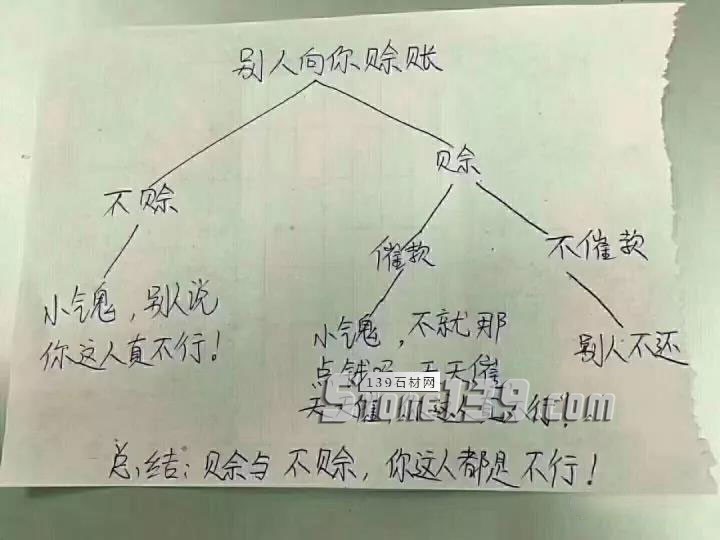 别人向你赊账
赊
不赊
催款
不催款
小气鬼，别人说
你这人真不行！
小气鬼，不就那
点钱吗 天天催
天天催 你这人 不行！
别人不还
139石材网
Stone139.com
总结：赊与不赊，你这人都是不行！